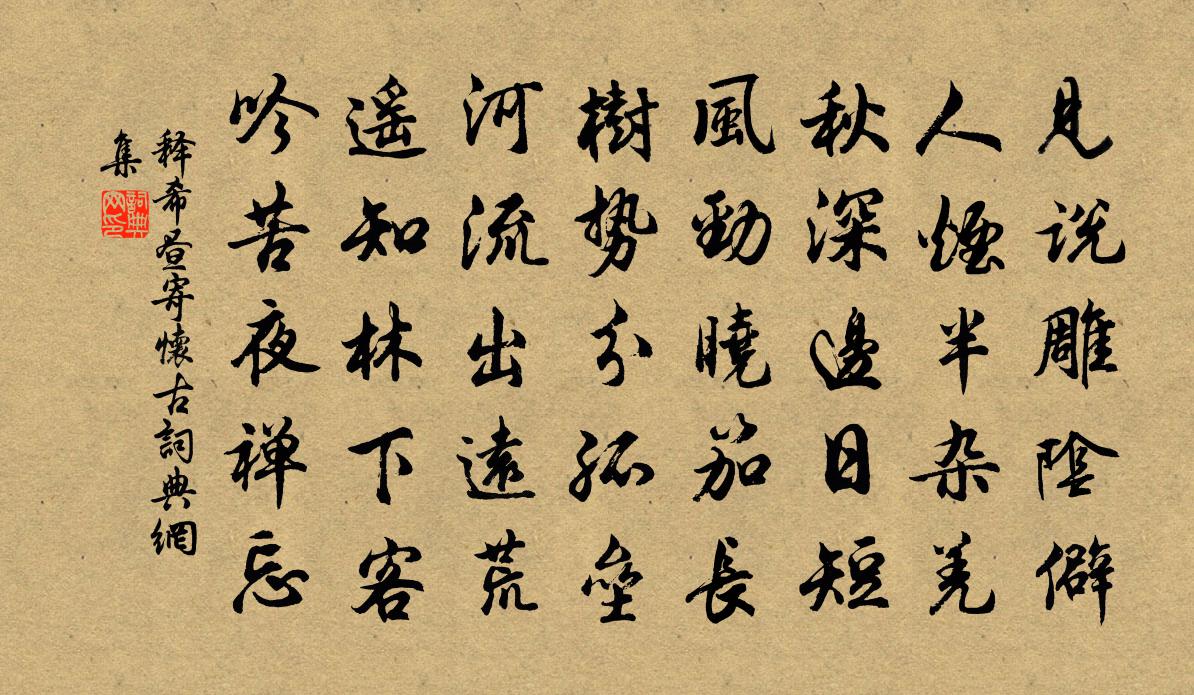 見説雕陰僻
人煙半杂羌
秋深邊日短
風勁曉笳長
樹势分孤壘
河流出遠荒
遥知林下客
吟苦夜禅忘
释希昼寄懷古詞典網
集
詞典網印